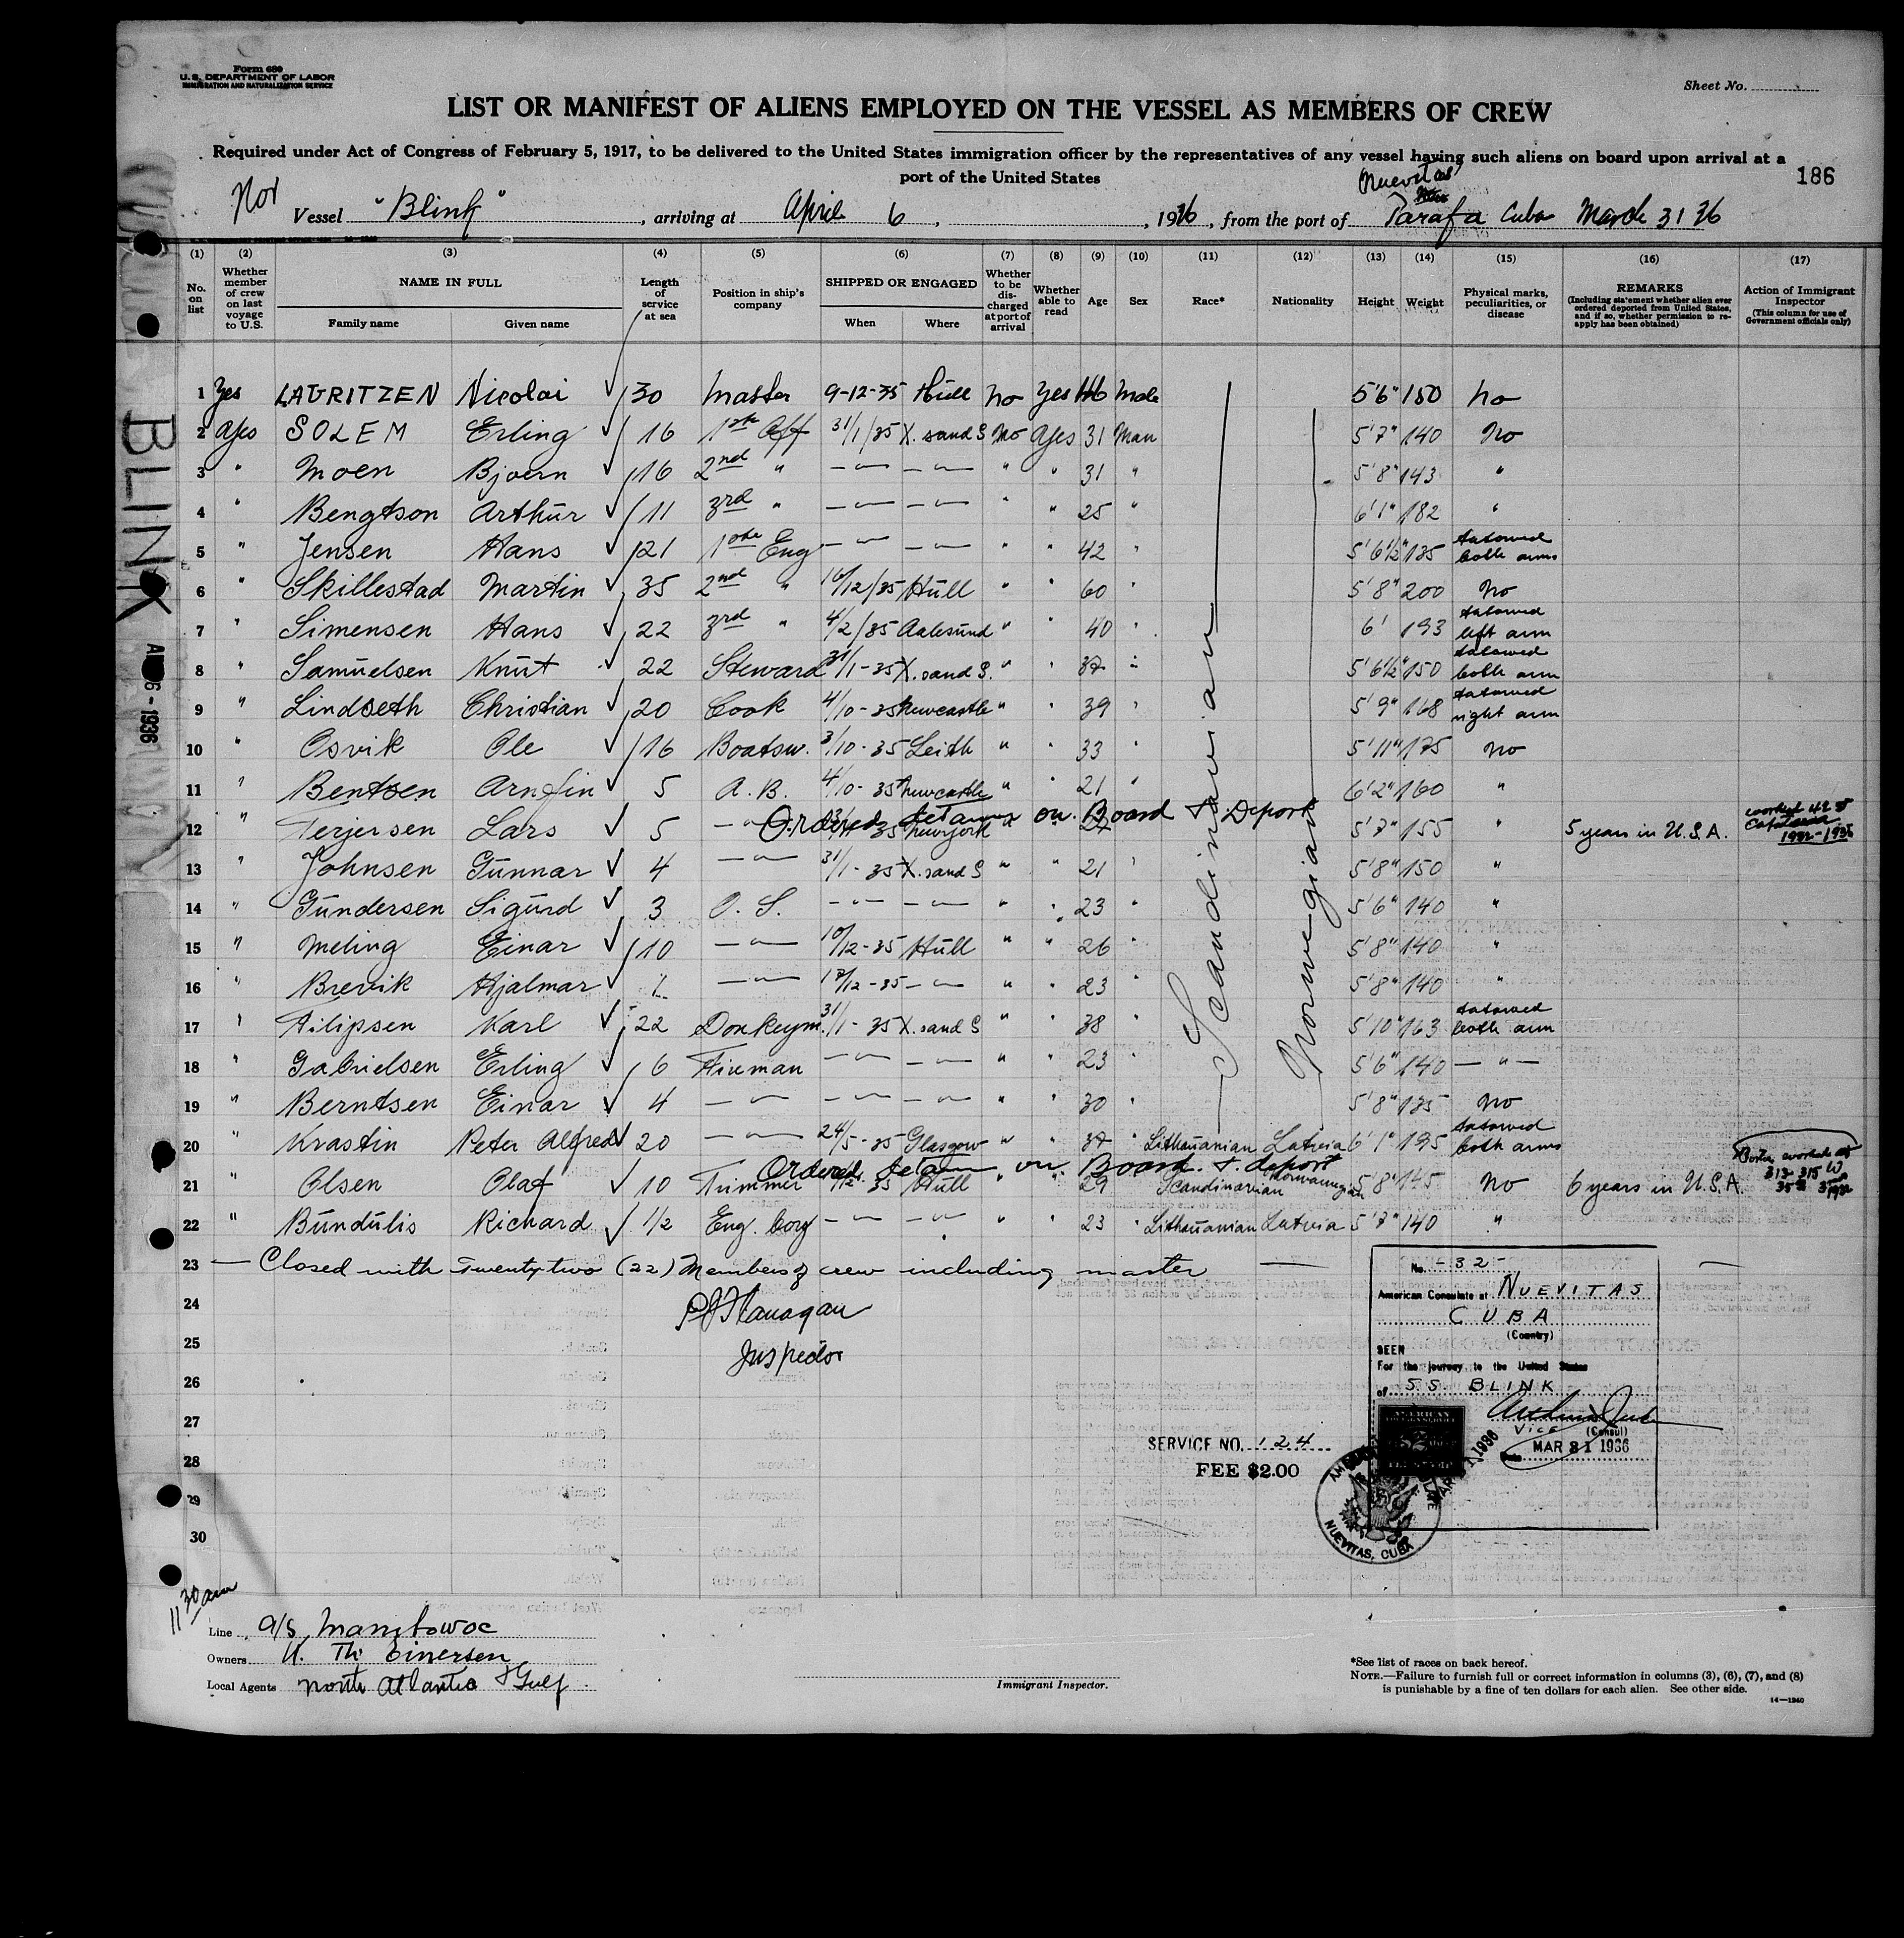 Form 680
U.S. DEPARTMENT OF LABOR
IMMIGRATION AND NATURALIZATION SERVICE
Sheet No.
LIST OR MANIFEST OF ALIENS EMPLOYED ON THE VESSEL AS MEMBERS OF CREW
Required under Act of Congress of February 5, 1917, to be delivered to the United States immigration officer by the representatives of any vessel having such aliens on board upon arrival at a
port of the United States
186
Nuevitas
Nor Vessel "Blink", arriving at April 6, 1936, from the port of Tarafa Cuba March 31 36
(1) (2) (3) (4) (5) (6) (7) (8) (9) (10) (11) (12) (13) (14) (15) (16) (17)
No. on list
Whether member of crew on last voyage to U.S.
NAME IN FULL
Family name Given name
Length of service at sea
Position in ship's company
SHIPPED OR ENGAGED
When Where
Whether to be discharged at port of arrival
Whether able to read
Age
Sex
Race*
Nationality
Height
Weight
Physical marks, peculiarities, or disease
REMARKS
(Including statement whether alien ever ordered deported from United States, and if so, whether permission to reapply has been obtained)
Action of Immigrant Inspector
(This column for use of Government officials only)
1 Yes LAURITZEN Nicolai 30 Master 9-12-35 Hull No Yes 46 Male 5'6" 150 No
2 Yes SOLEM Erling 16 1st Off 31/1/35 X.sand S No Yes 31 Man 5'7" 140 No
3 " Moen Bjoern 16 2nd " — " — — " — " " 31 " 5'8" 143 "
4 " Bengtson Arthur 11 3rd " — " — — " — " " 25 " 6'1" 182 "
5 " Jensen Hans 21 1ste Eng — " — — " — " " 42 " 5'6½" 135 tatowed both arms
6 " Skillestad Martin 35 2nd " 10/12/35 Hull " " 60 " 5'8" 200 No
7 " Simensen Hans 22 3rd " 4/2/35 Aalesund " " 40 " 6' 193 tatowed left arm
8 " Samuelsen Knut 22 Steward 31/1-35 X.sand S. " " 37 " 5'6½" 150 tatowed both arm
9 " Lindseth Christian 20 Cook 4/10-35 Newcastle " " 39 " 5'9" 168 tatowed right arm
10 " Osvik Ole 16 Boatsw. 3/10-35 Leith " " 33 " 5'11" 175 No
11 " Bentsen Arnfin 5 A.B. 4/10-35 Newcastle " " 21 " 6'2" 160 "
Ordered detain on Board & Deport
12 " Terjersen Lars 5 — " — 35 New york " 5'7" 155 " 5 years in U.S.A.
13 " Johnsen Gunnar 4 — " — 31/1-35 X.sand S " " 21 " 5'8" 150 "
14 " Gundersen Sigurd 3 O.S. — " — — " — " " 23 " 5'6" 140 "
15 " Meling Einar 10 — " — 10/12-35 Hull " " 26 " 5'8" 140 "
16 " Brevik Hjalmar 1 — " — 17/12-35 — " — " " 23 " 5'8" 140 "
17 " Filipsen Karl 22 Donkeym. 31/1-35 X.sand S " " 38 " 5'10" 163 tatowed both arm
18 " Gabrielsen Erling 6 Fireman — " — — " — " " 23 5'6" 140 — " —
19 " Berntsen Einar 4 — " — — " — — " — " " 30 " 5'8" 135 No
20 " Krastin Peter Alfred 20 — " — 24/5-35 Glasgow " " 37 " Lithauanian Latvia 6'1" 195 tatowed both arms
Ordered detain on Board & deport
21 " Olsen Olaf 10 Trimmer 35 Hull " " 29 Scandinavian Norwaugian 5'8" 145 No 6 years in U.S.A.
22 " Bundulis Richard 1/2 Eng. boy — " — — " — " " 23 " Lithauanian Latvia 5'7" 140 "
Scandinavian
Norwegian
23 — Closed with Twenty two (22) Members of crew including master —
24 PJ Flanagan
25 Inspector
26
27
28
29
30
No. -32-
American Consulate at NUEVITAS
CUBA
(Country)
SEEN
For the journey to the United States
of SS. BLINK
VICE (Consul)
Date MAR 31 1936
SERVICE NO. 124
FEE $2.00
NUEVITAS, CUBA
BLINK
6 - 1936
11 30 am
Line A/S Manitowoc
Owners Th. Einersen
Local Agents North Atlantic & Gulf
Immigrant Inspector.
*See list of races on back hereof.
NOTE.—Failure to furnish full or correct information in columns (3), (6), (7), and (8)
is punishable by a fine of ten dollars for each alien. See other side.
14—1240